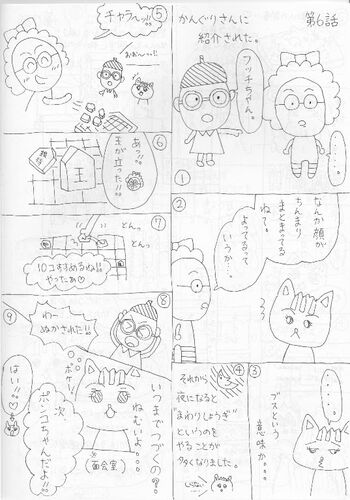 第6話
かんぐりさんに
紹介された。
フッチちゃん。
・・・・。
①
②
なんか顔が
ちんまり
まとまってる
ねて。
よってるって
いうか…
③
・・・・
ブスという
意味か・・・
④
それから
夜になると
"まわりしょうぎ"
というのを
やることが
多くなりました。
しぶい
⑤
チャラ〜ッ!!
おお〜っ!!
⑥
あっ!!
王が立った!!
王
⑦
とんっ
とんっ
10コすすめるね!!
やったあ♡
⑧
わー
ぬかされた!!
⑨
いつまでつづくの?
ねむいよ…
ポケー
面会室
次
ポンコちゃんだよ!!
はい!!